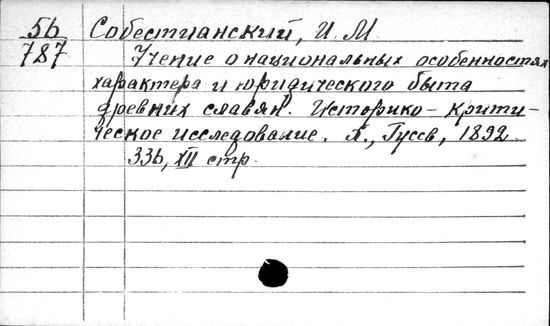 56 Собестианский, И. М
787 Учение о национальных особенностях
характера и юридического быта
древних славян. Историко-крити-
ческое исследование. Х., Гуссв, 1892
336, XII стр.